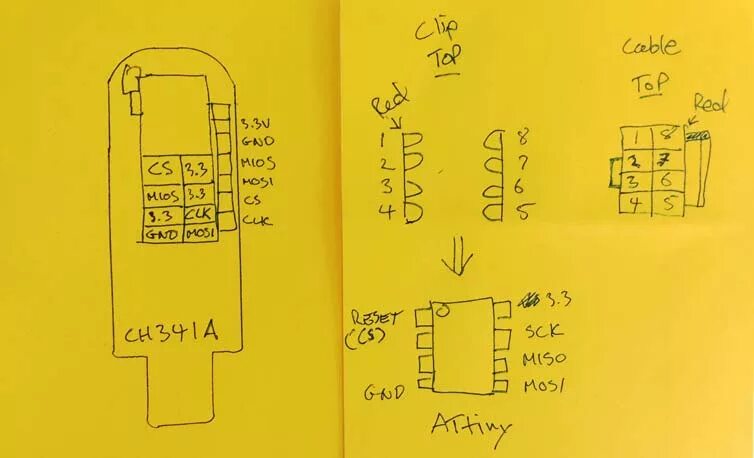 3.3V
GND
MIOS
MOSI
CS
CLK
CS 3.3
MIOS 3.3
3.3 CLK
GND MOSI
CH341A
Clip
TOP
Red
1 8
2 7
3 6
4 5
Cable
TOP
Red
1 8
2 7
3 6
4 5
RESET
(CS)
GND
3.3
SCK
MISO
MOSI
ATtiny